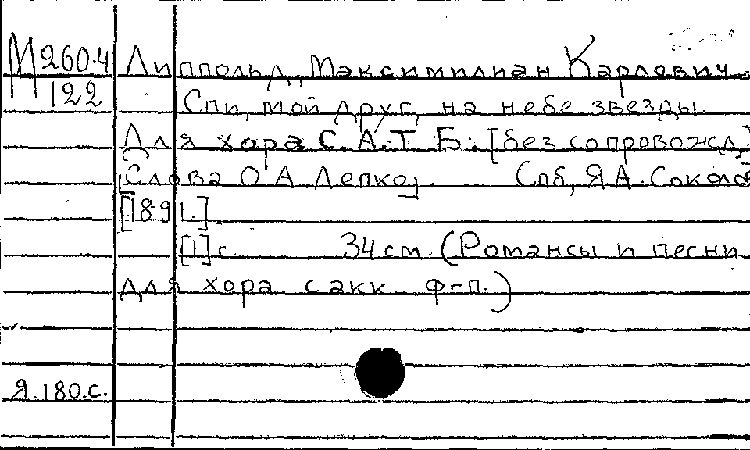 М260.4 Липпольд, Максимилиан Карлович
М 122 Спи, мой друг, на небе звезды.
Для хора С. А. Т. Б. [без сопровожд.]
Слова О.А. Лепко, Спб, Я.А. Соколов
[1891.]
[1] с. 34 см. (Романсы и песни
для хора с акк. ф-п.)
Я.180.с.